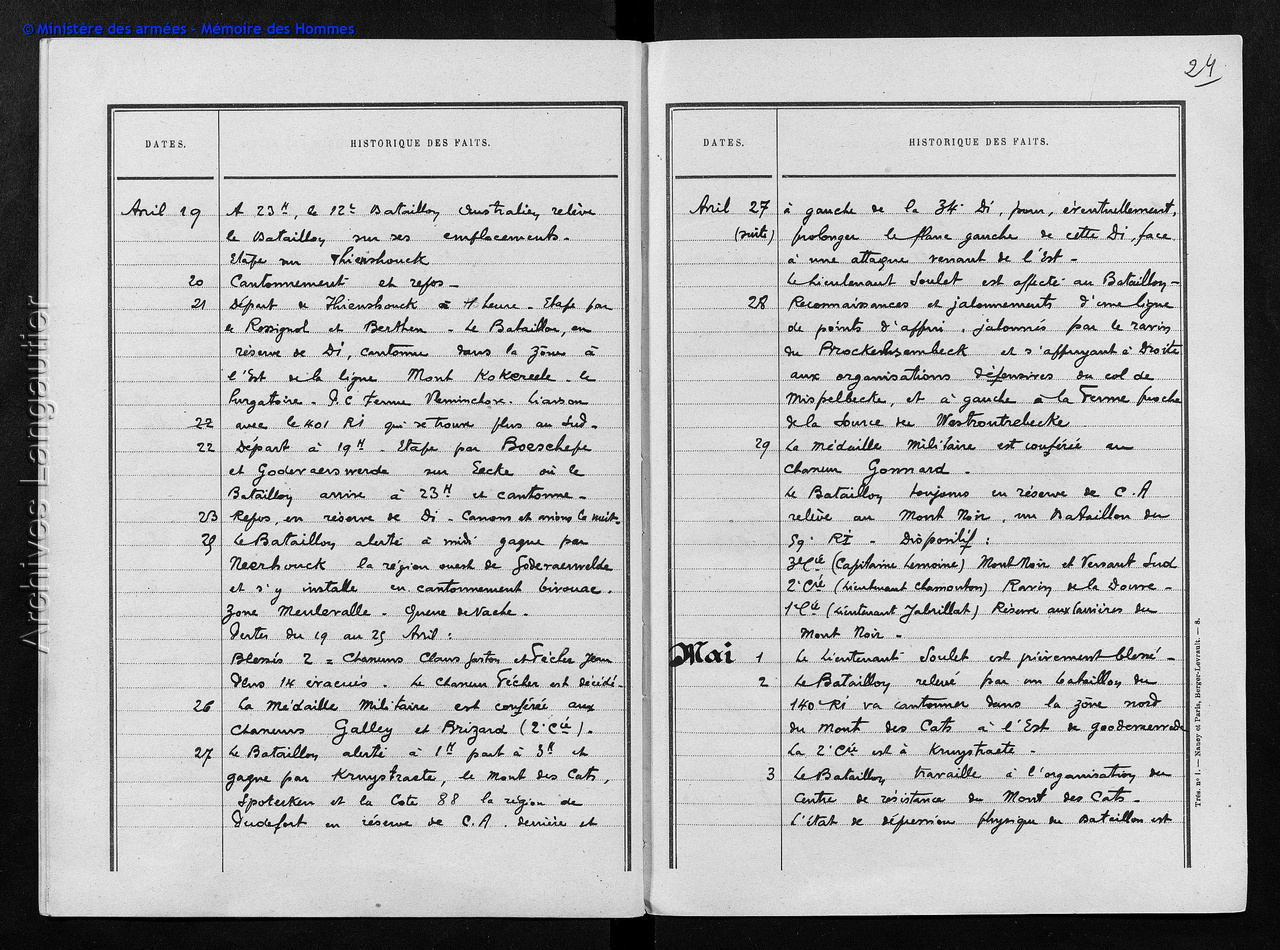 © Ministère des armées - Mémoire des Hommes
24
DATES.
HISTORIQUE DES FAITS.
Avril 19 A 23H, le 12e Bataillon Australien relève
le Bataillon sur ses emplacements -
Etape sur Thienshouck
20 Cantonnement et repos -
21 Départ de Thienshouck à H heure - Etape par
le Rossignol et Berthen - Le Bataillon, en
réserve de Di, cantonne dans la zône à
l'Est de la ligne Mont Kokereele - le
Purgatoire - P.C Ferme - Liaison
22 avec le 401 RI qui se trouve plus au Sud -
22 Départ à 19H - Etape par Boeschepe
et Godevaerswerde sur Eecke où le
Bataillon arrive à 23H et cantonne -
23 Repos, en réserve de Di - Canons et avions la nuit -
25 Le Bataillon alerté à midi gagne par
Neerhouck la région ouest de Godevaerwelde
et s'y installe en cantonnement bivouac.
Zone Meulevalle - Queue de Vache -
Pertes du 19 au 25 Avril :
Blessés 2 = Chasseurs Claus Gaston et Fécher Jean
Plus 14 évacués - Le Chasseur Fécher est décédé -
26 La Médaille Militaire est conférée aux
Chasseurs Galley et Brizard (2e Cie).
27 Le Bataillon alerté à 1H part à 3H et
gagne par Kruystraete, le Mont des Cats,
Spotecken et la Cote 88 la région de
en réserve de C.A. derrière et
DATES.
HISTORIQUE DES FAITS.
Avril 27 à gauche de la 34e Di, pour, éventuellement,
(suite) prolonger le flanc gauche de cette Di, face
à une attaque venant de l'Est -
Le Lieutenant Soulet est affecté au Bataillon -
28 Reconnaissances et jalonnements d'une ligne
de points d'appui, jalonnés par le ravin
du et s'appuyant à Droite
aux organisations défensives du col de
Mispelbecke, et à gauche à la Ferme proche
de la source du Westroutrebecke
29 La médaille Militaire est conférée au
Chasseur Gonnard -
Le Bataillon toujours en réserve de C.A
relève au Mont Noir, un Bataillon du
59e RI - Dispositif :
3e Cie (Capitaine Lemoine) Mont Noir et Versant Sud
2e Cie (Lieutenant Chamouton) Ravin de la Douve -
1e Cie (Lieutenant Jabrillat) Réserve aux lisières du
Mont Noir -
Mai 1 Le Lieutenant Soulet est grièvement blessé -
2 Le Bataillon relevé par un bataillon du
140e RI va cantonner dans la zône nord
du Mont des Cats à l'Est de
La 2e Cie est à Kruystraete -
3 Le Bataillon travaille à l'organisation du
Centre de résistance du Mont des Cats -
L'état de dépression physique du Bataillon est
Trés. no 1. — Nancy et Paris, Berger-Levrault. — 8.
Archives Langautier